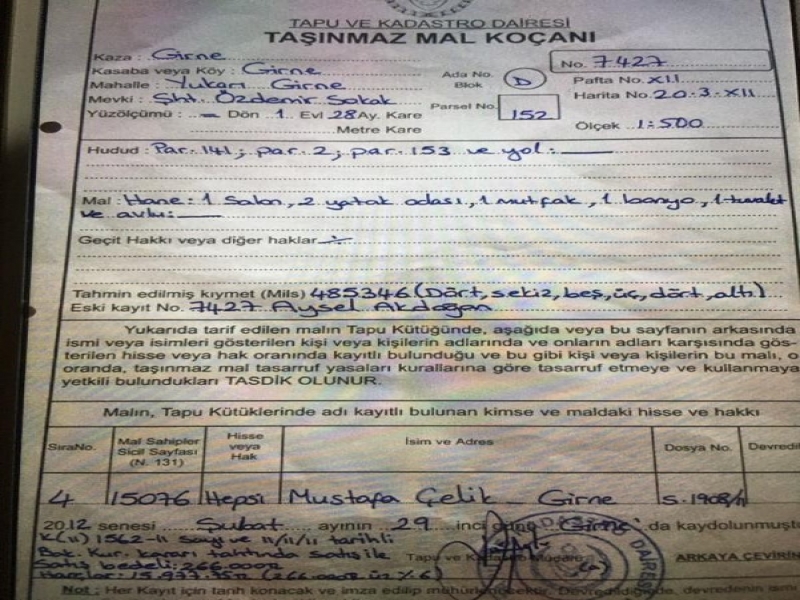 TAPU VE KADASTRO DAİRESİ
TAŞINMAZ MAL KOÇANI
Kaza : Girne
No. 7427
Kasaba veya Köy : Girne
Ada No. Blok D
Pafta No. XII
Mahalle : Yukarı Girne
Harita No. 20.3.XII
Mevki : Şht. Özdemir Sokak
Parsel No. 152
Yüzölçümü : — Dön 1 Evl 28 Ay. Kare
Metre Kare
Ölçek 1:500
Hudud : Par. 141; par. 2; par. 153 ve yol:
Mal : Hane: 1 Salon, 2 yatak odası, 1 mutfak, 1 banyo, 1 tuvalet
ve avlu:
Geçit Hakkı veya diğer haklar
Tahmin edilmiş kıymet (Mils) 485346 (Dört, sekiz, beş, üç, dört, altı)
Eski kayıt No. 7427 Aysel Akdoğan
Yukarıda tarif edilen malın Tapu Kütüğünde, aşağıda veya bu sayfanın arkasında
ismi veya isimleri gösterilen kişi veya kişilerin adlarında ve onların adları karşısında gös-
terilen hisse veya hak oranında kayıtlı bulunduğu ve bu gibi kişi veya kişilerin bu malı, o
oranda, taşınmaz mal tasarruf yasaları kurallarına göre tasarruf etmeye ve kullanmaya
yetkili bulundukları TASDİK OLUNUR.
Malın, Tapu Kütüklerinde adı kayıtlı bulunan kimse ve maldaki hisse ve hakkı
Sıra No.
Mal Sahipler Sicil Sayfası (N. 131)
Hisse veya Hak
İsim ve Adres
Dosya No.
Devredil
4 15076 Hepsi Mustafa Çelik - Girne S.1908/11
2012 senesi Şubat ayının 29 inci günü Girne da kaydolunmuştu
K(II) 1562-II sayı ve 11/11/11 tarihli
Bak. Kur. kararı tahtında satış ile
Tapu ve
ARKAYA ÇEVİRİN
Satış bedeli: 266.000
Harçlar: 15,977.75
Not : Her Kayıt için tarih konacak ve imza edilip mühürlenecektir.